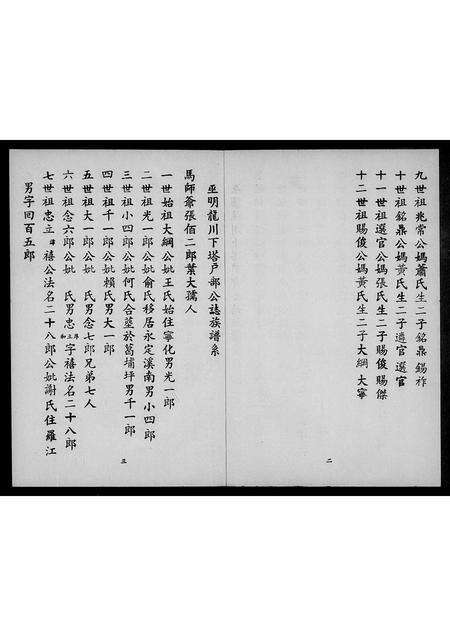 九世祖兆常公媽蕭氏生二子銘鼎 錫祚
十世祖銘鼎公媽黃氏生二子遴官 選官
十一世祖選官公媽張氏生二子賜俊 賜傑
十二世祖賜俊公媽黃氏生二子大綱 大寧
二
巫明龍川下塔戶部公誌族譜系
馬師爺張佰二郎葉大孺人
一世始祖大綱公妣王氏始住寧化男光一郎
二世祖光一郎公妣俞氏移居永定溪南男小四郎
三世祖小四郎公妣何氏合墓於葛埔坪男千一郎
四世祖千一郎公妣賴氏男大一郎
五世祖大一郎公妣 氏男念七郎兄弟七人
六世祖念六郎公妣 氏男忠立字禧法名二十八郎
七世祖忠立字禧公法名二十八郎公妣謝氏住羅江
男字回百五郎
三